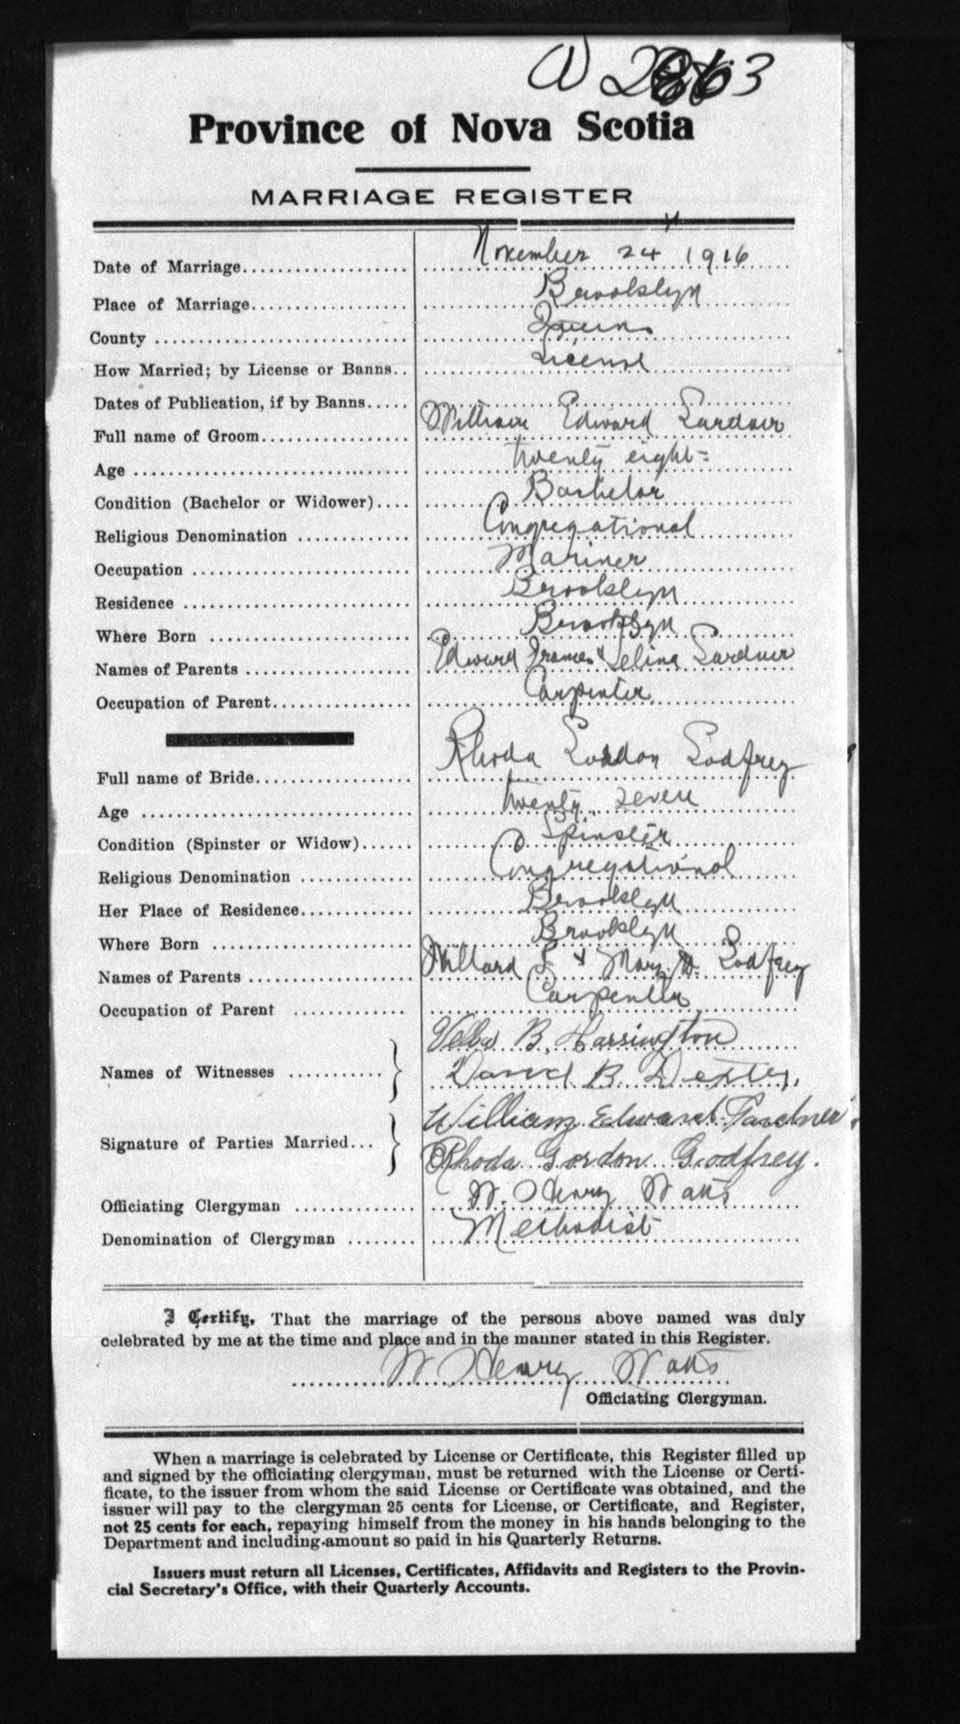 Province of Nova Scotia
MARRIAGE REGISTER
Date of Marriage November 24 1916
Place of Marriage Brooklyn
County Queens
How Married; by License or Banns License
Dates of Publication, if by Banns
Full name of Groom William Edward Gardner
Age twenty eight
Condition (Bachelor or Widower) Bachelor
Religious Denomination Congregational
Occupation Mariner
Residence Brooklyn
Where Born Brooklyn
Names of Parents Edward & Selina Gardner
Occupation of Parent Carpenter
Full name of Bride Rhoda Gordon Godfrey
Age twenty seven
Condition (Spinster or Widow) Spinster
Religious Denomination Congregational
Her Place of Residence Brooklyn
Where Born Brooklyn
Names of Parents Willard & Mary Godfrey
Occupation of Parent Carpenter
Names of Witnesses B. Harrington
David B. Dexter.
Signature of Parties Married William Edward Gardner
Rhoda Gordon Godfrey.
Officiating Clergyman W. Henry Watts
Denomination of Clergyman Methodist
I Certify, That the marriage of the persons above named was duly
celebrated by me at the time and place and in the manner stated in this Register.
W Henry Watts
Officiating Clergyman.
When a marriage is celebrated by License or Certificate, this Register filled up
and signed by the officiating clergyman, must be returned with the License or Certi-
ficate, to the issuer from whom the said License or Certificate was obtained, and the
issuer will pay to the clergyman 25 cents for License, or Certificate, and Register,
not 25 cents for each, repaying himself from the money in his hands belonging to the
Department and including amount so paid in his Quarterly Returns.
Issuers must return all Licenses, Certificates, Affidavits and Registers to the Provin-
cial Secretary's Office, with their Quarterly Accounts.